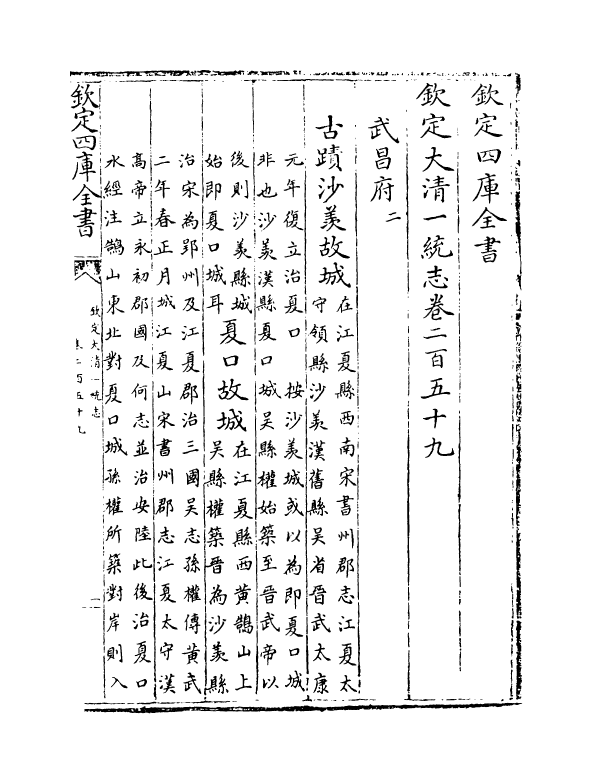 欽定四庫全書
欽定大清一統志卷二百五十九
武昌府二
古蹟沙羡故城在江夏縣西南宋書州郡志江夏太
守領縣沙羡漢舊縣吳省晉武太康
元年復立治夏口 按沙羡城或以為即夏口城
非也沙羡漢縣夏口城吳縣權始築至晉武帝以
後則沙羡縣城
始即夏口城耳夏口故城在江夏縣西黃鵠山上
吳縣權築晉為沙羡縣
治宋為郢州及江夏郡治三國吳志孫權傳黃武
二年春正月城江夏山宋書州郡志江夏太守漢
高帝立永初郡國及何志並治安陸此後治夏口
水經注鵠山東北對夏口城孫權所築對岸則入
欽定四庫全書
欽定大清一統志
卷二百五十九
一